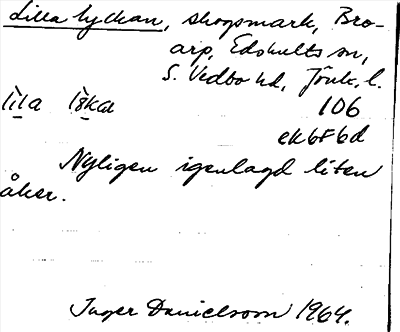 Lilla lyckan, skogsmark, Bro-
arp, Edshults sn,
S. Vedbo hd, Jönk. l.
106
ek6f6d
Nyligen igenlagd liten
åker.
Inger Danielsson 1964.